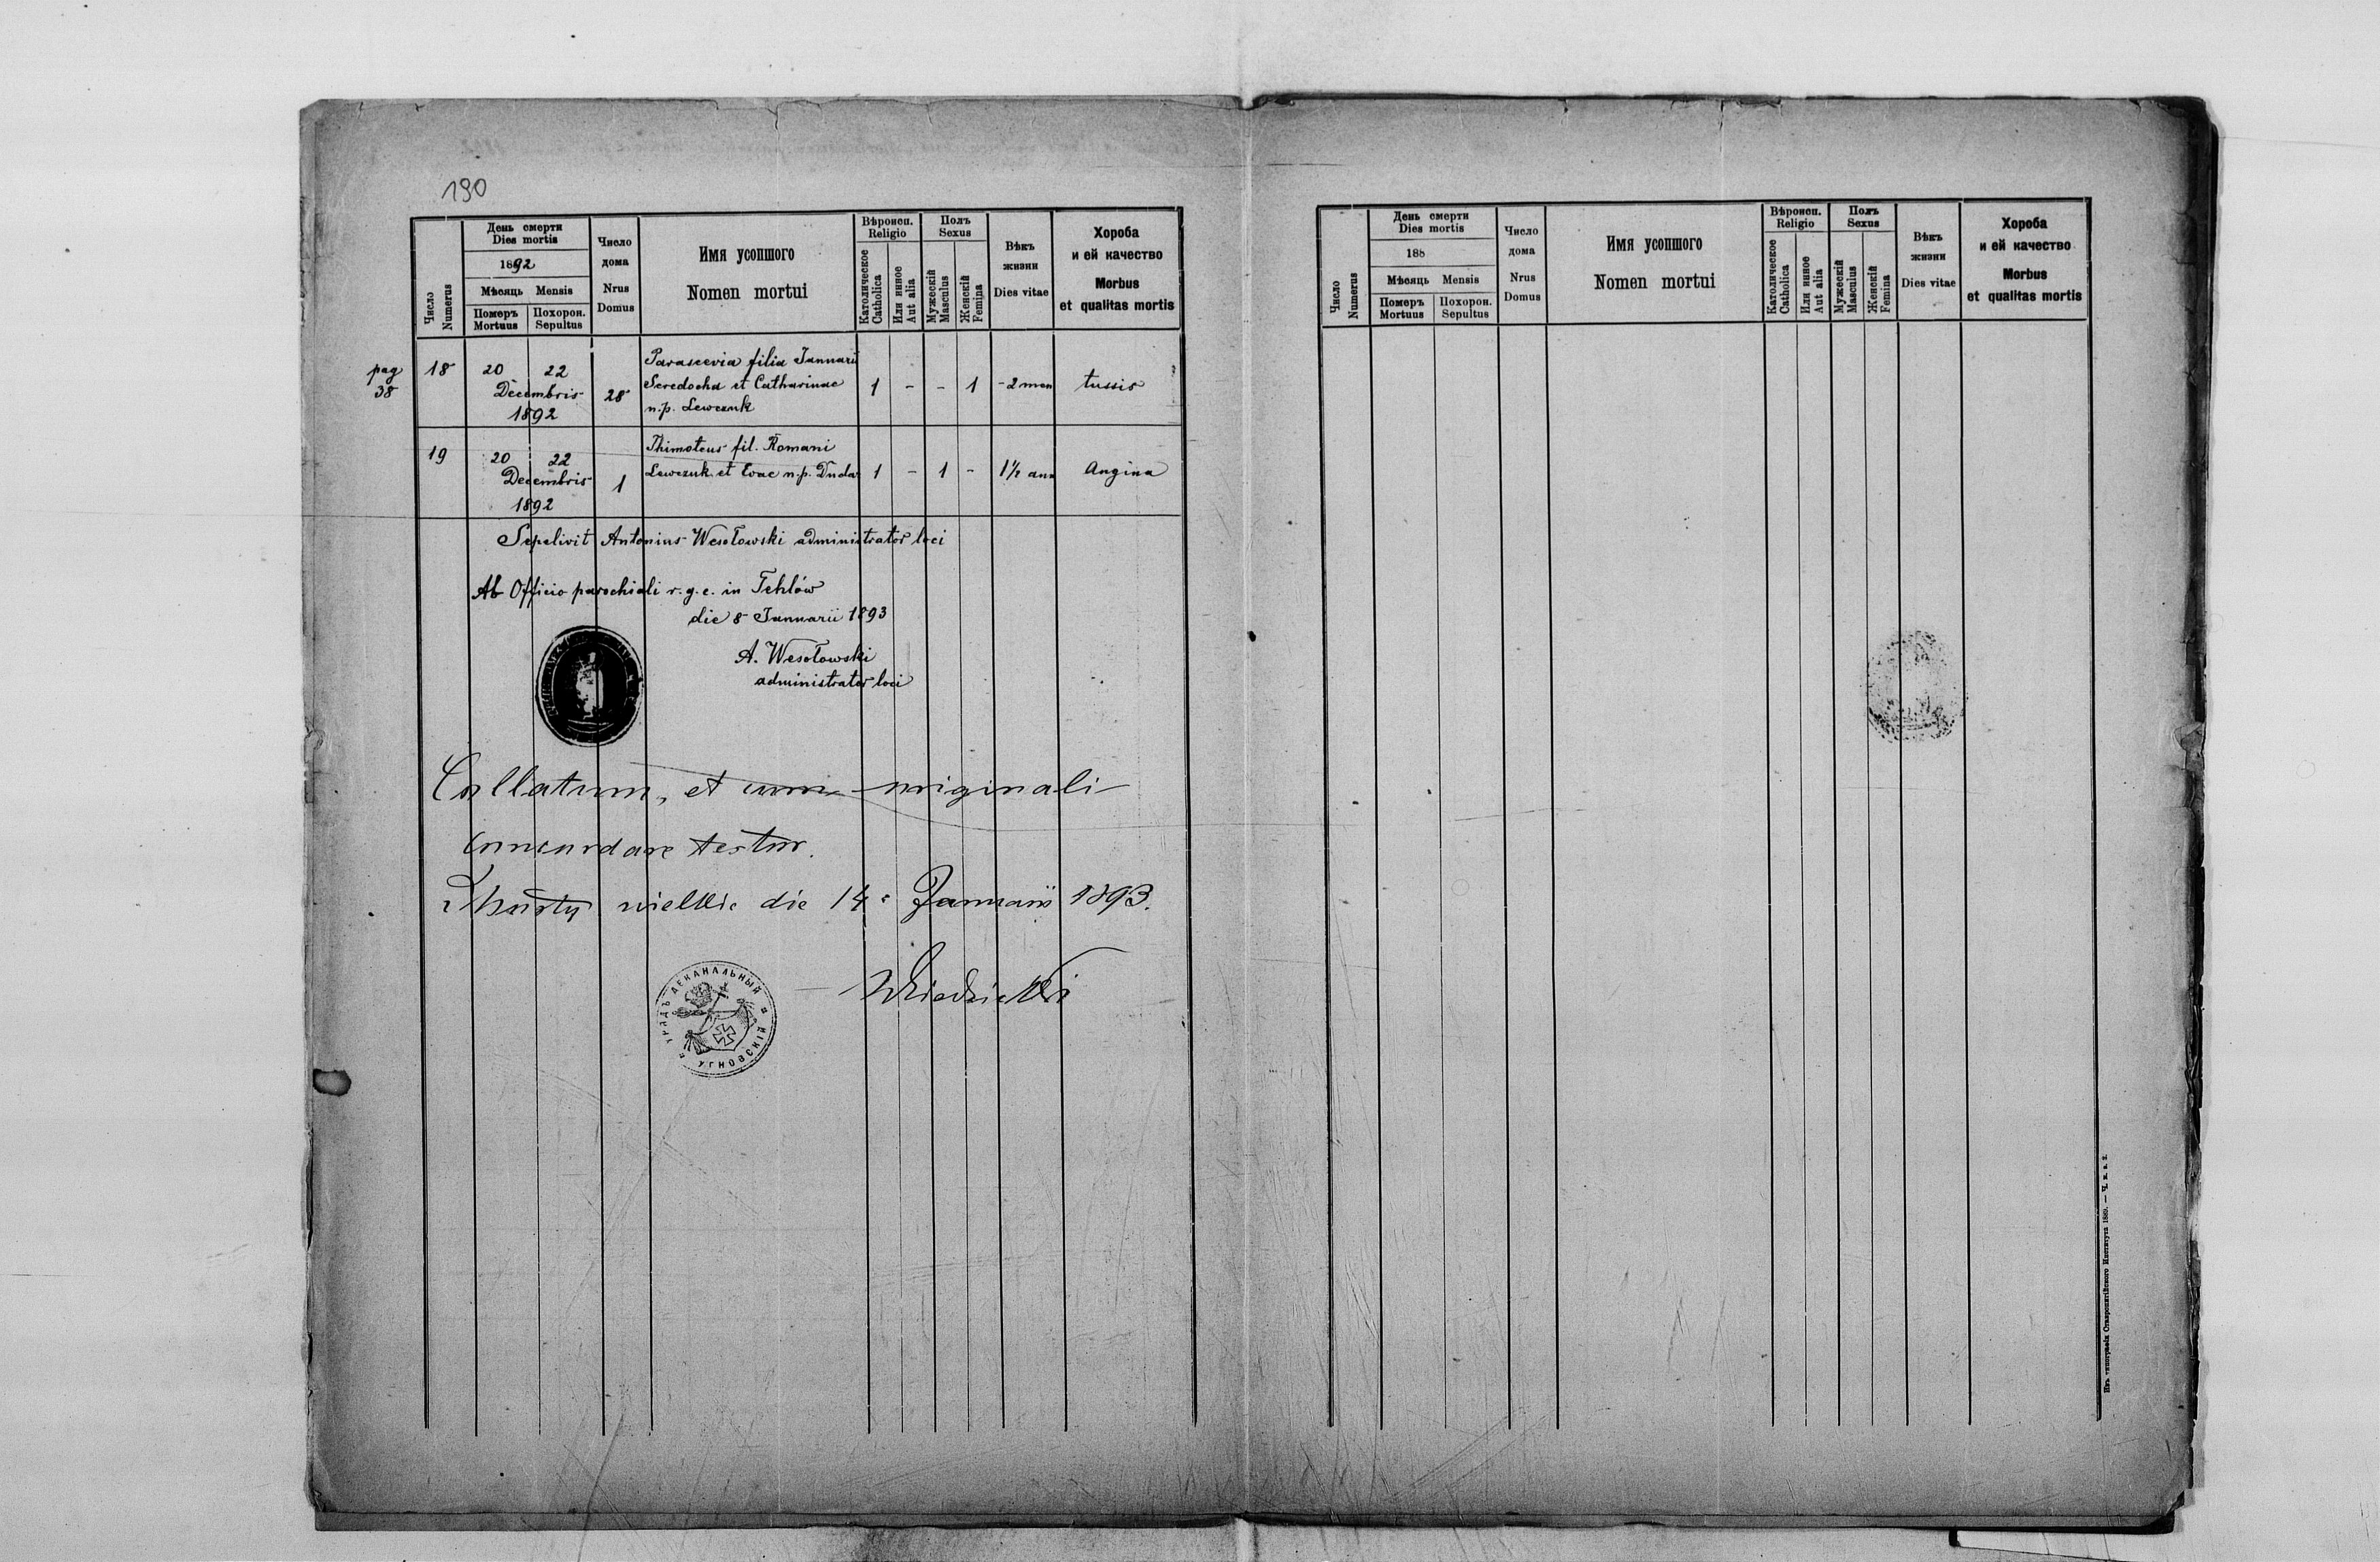 190
Число
Numerus
День смерти
Dies mortis
1892
Мѣсяць Mensis
Померъ
Mortuus
Похорон.
Sepultus
Число
дома
Nrus
Domus
Имя усопшого
Nomen mortui
Вѣроисп.
Religio
Католическое
Catholica
Или инное
Aut alia
Полъ
Sexus
Мужескій
Masculus
Женскій
Femina
Вѣкъ
жизни
Dies vitae
Хороба
и ей качество
Morbus
et qualitas mortis
pag
38
18 20 22
Decembris
1892
28
Parascevia filia Januarii
Seredocha et Catharinae
n.p. Lewczuk
1 - - 1 -2 men tussis
19 20 22
Decembris
1892
1
Thimoteus fil. Romani
Lewczuk et Evae n.p. Dudar
1 - 1 - 1½ ann Angina
Sepelivit Antonius Wesołowski administrator loci
Ab Officio parochiali r.g.c. in Tehlów
die 8 Januarii 1893
A. Wesołowski
administrator loci
Collatum, et cum originali
concordare testor.
wielkie die 14 Januarii 1893.
УРЯДЪ ДЕКАНАЛЬНЫЙ
УГНОВСКІЙ
Число
Numerus
День смерти
Dies mortis
188
Мѣсяць Mensis
Померъ
Mortuus
Похорон.
Sepultus
Число
дома
Nrus
Domus
Имя усопшого
Nomen mortui
Вѣроисп.
Religio
Католическое
Catholica
Или инное
Aut alia
Полъ
Sexus
Мужескій
Masculus
Женскій
Femina
Вѣкъ
жизни
Dies vitae
Хороба
и ей качество
Morbus
et qualitas mortis
Изъ типографіи Ставропигійского Института 1889.